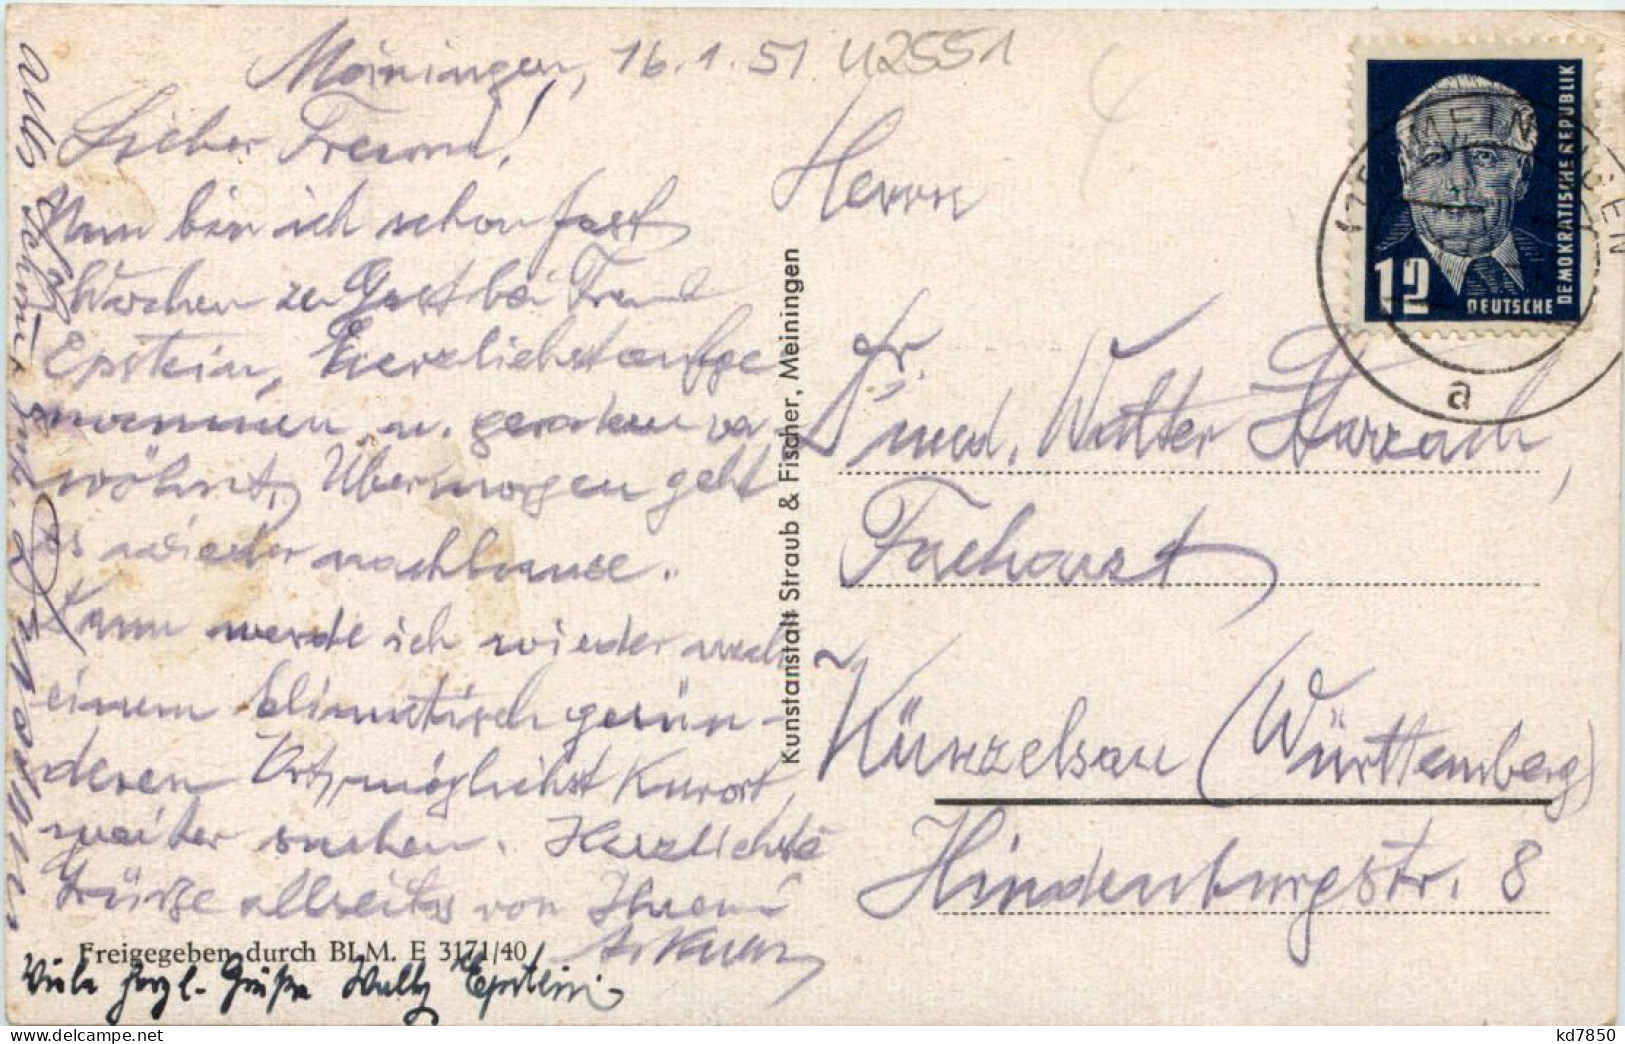 Meiningen, 16.1.51
U2551
Lieber Freund!
Nun bin ich schon fast
Wochen zu Gast bei Freund
Epstein, Herzlichst aufge
nommen u. geradezu ver
wöhnt. Übermorgen geht
es wieder nachhause.
Dann werde ich wieder nach
einem klimatisch gesün-
deren Ort, möglichst Kurort,
weiter suchen. Herzlichste
Grüsse allseits von Ihrem
Freigegeben durch BLM. E 3171/40
Viele herzl. Grüße Willy Epstein
Kunstanstalt Straub & Fischer, Meiningen
Herrn
Dr. med. Walter
Facharzt
Künzelsau (Württemberg)
Hindenburgstr. 8
DEUTSCHE
DEMOKRATISCHE REPUBLIK
12
MEININGEN
a
kd7850